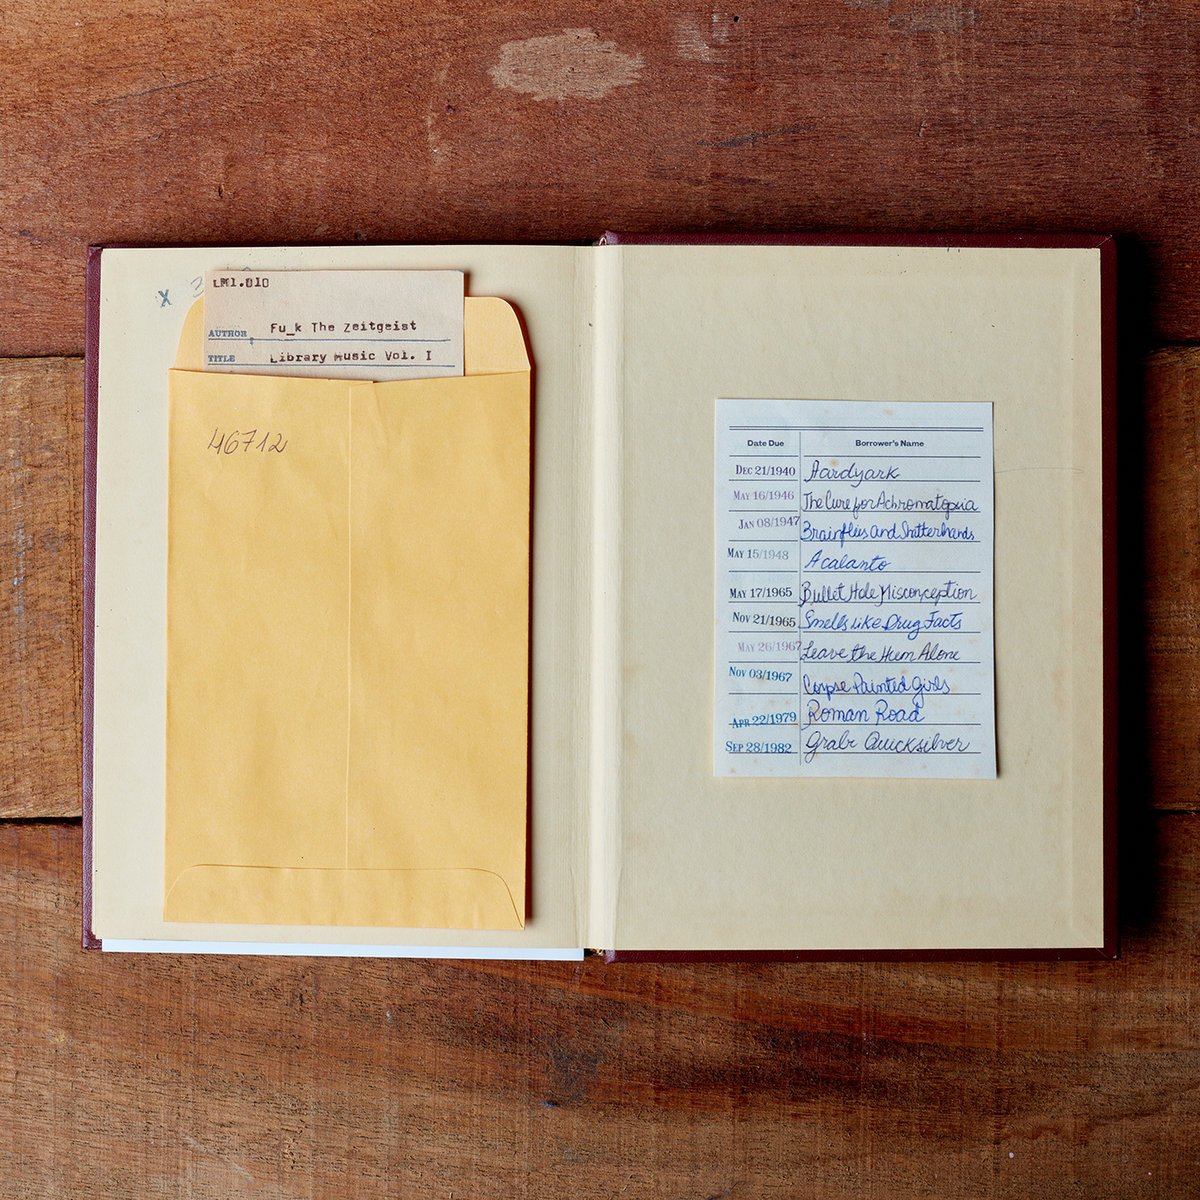 LM1.010
X 3
AUTHOR Fu_k The Zeitgeist
TITLE Library Music Vol. I
46712
Date Due Borrower's Name
DEC 21/1940 Aardyark
MAY 16/1946 The Cure for Achromatopsia
JAN 08/1947 Brainflies and Shatterhands
MAY 15/1948 Acalanto
MAY 17/1965 Bullet Hole Misconception
NOV 21/1965 Smells Like Drug Facts
MAY 26/1967 Leave the Hum Alone
NOV 03/1967 Corpse Painted Girls
APR 22/1979 Roman Road
SEP 28/1982 Quicksilver